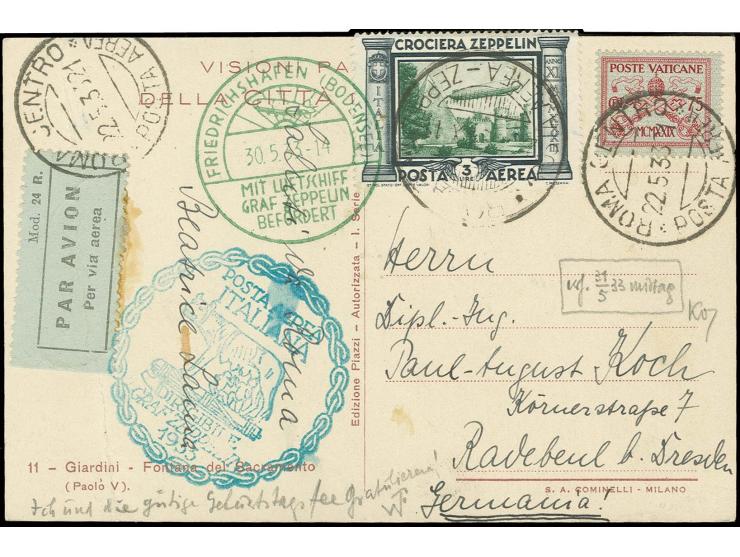 VISION PA
DELLA CITTA
ROMA CENTRO
22.5.33.21
POSTA AEREA
FRIEDRICHSHAFEN (BODENSEE)
30.5.33.-14
MIT LUFTSCHIFF
GRAF ZEPPELIN
BEFÖRDERT
CROCIERA ZEPPELIN
ITALIA
POSTA 3 LIRE AEREA
POSTE VATICANE
MCMXXIX
ROMA CENTRO
22.5.33
POSTA AEREA
Mod. 24 R.
PAR AVION
Per via aerea
Saluti da Roma
Beatrice
POSTA AEREA
ITALIANA
DIRIGIBILE
GRAF ZEPPELIN
1933
Edizione Piazzi - Autorizzata - I. Serie
Herrn
Dipl.-Ing.
Paul-August Koch
Körnerstraße 7
Radebeul b. Dresden
Germania!
31/5 33 mittag
Ko
11 - Giardini - Fontana del Sacramento
(Paolo V).
Ich und die gütige Geburtstagsfee gratulieren!
S. A. COMINELLI - MILANO